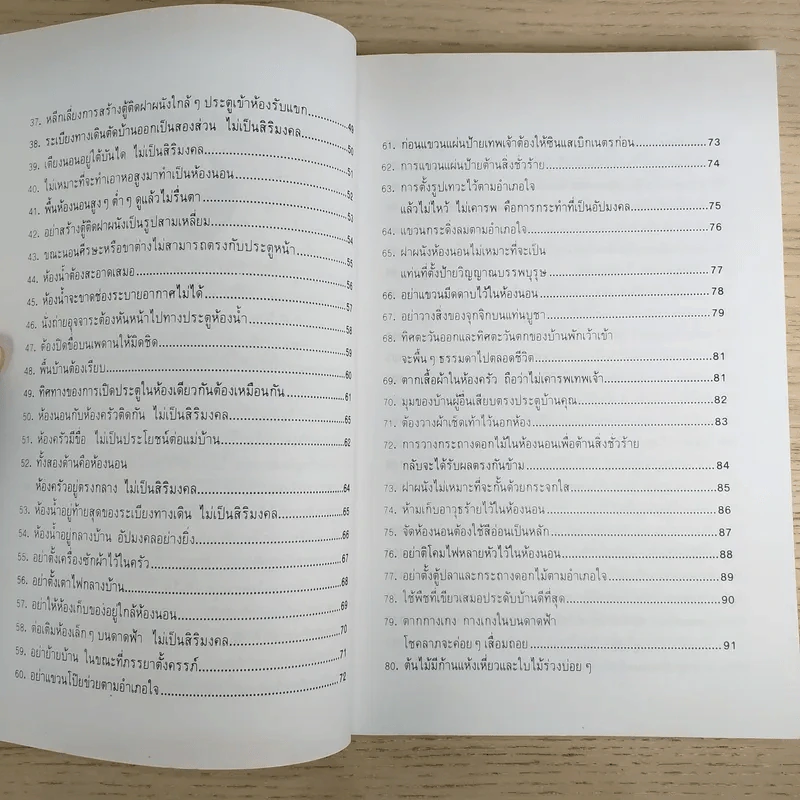 37. หลีกเลี่ยงการสร้างตู้ติดฝาผนังใกล้ๆ ประตูเข้าห้องรับแขก....................49
38. ระเบียงทางเดินตัดบ้านออกเป็นสองส่วน ไม่เป็นสิริมงคล....................50
39. เตียงนอนอยู่ใต้บันได ไม่เป็นสิริมงคล....................51
40. ไม่เหมาะที่จะทำเอาหอสูงมาทำเป็นห้องนอน....................52
41. พื้นห้องนอนสูงๆ ต่ำๆ ดูแล้วไม่รื่นตา....................53
42. อย่าสร้างตู้ติดฝาผนังเป็นรูปสามเหลี่ยม....................54
43. ขณะนอนศีรษะหรือขาต่างไม่สามารถตรงกับประตูหน้า....................55
44. ห้องน้ำต้องสะอาดเสมอ....................56
45. ห้องน้ำจะขาดช่องระบายอากาศไม่ได้....................57
46. นั่งถ่ายอุจจาระต้องหันหน้าไปทางประตูห้องน้ำ....................58
47. ต้องปิดขื่อบนเพดานให้มิดชิด....................59
48. พื้นบ้านต้องเรียบ....................60
49. ทิศทางของการเปิดประตูในห้องเดียวกันต้องเหมือนกัน....................61
50. ห้องนอนกับห้องครัวติดกัน ไม่เป็นสิริมงคล....................65
51. ห้องครัวมีขื่อ ไม่เป็นประโยชน์ต่อแม่บ้าน....................62
52. ทั้งสองด้านคือห้องนอน
ห้องครัวอยู่ตรงกลาง ไม่เป็นสิริมงคล....................64
53. ห้องน้ำอยู่ท้ายสุดของระเบียงทางเดิน ไม่เป็นสิริมงคล....................65
54. ห้องน้ำอยู่กลางบ้าน อัปมงคลอย่างยิ่ง....................66
55. อย่าตั้งเครื่องซักผ้าไว้ในครัว....................67
56. อย่าตั้งเตาไฟกลางบ้าน....................68
57. อย่าให้ห้องเก็บของอยู่ใกล้ห้องนอน....................69
58. ต่อเติมห้องเล็กๆ บนดาดฟ้า ไม่เป็นสิริมงคล....................70
59. อย่าย้ายบ้าน ในขณะที่ภรรยาตั้งครรภ์....................71
60. อย่าแขวนโป๊ยข่วยตามอำเภอใจ....................72
61. ก่อนแขวนแผ่นป้ายเทพเจ้าต้องให้ซินแสเบิกเนตรก่อน....................73
62. การแขวนแผ่นป้ายต้านสิ่งชั่วร้าย....................74
63. การตั้งรูปเทวะไว้ตามอำเภอใจ
แล้วไม่ไหว้ ไม่เคารพ คือการกระทำที่เป็นอัปมงคล....................75
64. แขวนกระดิ่งลมตามอำเภอใจ....................76
65. ฝาผนังห้องนอนไม่เหมาะที่จะเป็น
แท่นที่ตั้งป้ายวิญญาณบรรพบุรุษ....................77
66. อย่าแขวนมีดดาบไว้ในห้องนอน....................78
67. อย่าวางสิ่งของจุกจิกบนแท่นบูชา....................79
68. ทิศตะวันออกและทิศตะวันตกของบ้านพักเว้าเข้า
จะพื้นๆ ธรรมดาไปตลอดชีวิต....................81
69. ตากเสื้อผ้าในห้องครัว ถือว่าไม่เคารพเทพเจ้า....................81
70. มุมของบ้านผู้อื่นเสียบตรงประตูบ้านคุณ....................82
71. ต้องวางผ้าเช็ดเท้าไว้นอกห้อง....................83
72. การวางกระถางดอกไม้ในห้องนอนเพื่อต้านสิ่งชั่วร้าย
กลับจะได้รับผลตรงกันข้าม....................84
73. ฝาผนังไม่เหมาะที่จะกั้นด้วยกระจกใส....................85
74. ห้ามเก็บอาวุธร้ายไว้ในห้องนอน....................86
75. จัดห้องนอนต้องใช้สีอ่อนเป็นหลัก....................87
76. อย่าติโคมไฟหลายหัวไว้ในห้องนอน....................88
77. อย่าตั้งตู้ปลาและกระถางดอกไม้ตามอำเภอใจ....................89
78. ใช้พืชที่เขียวเสมอประดับบ้านดีที่สุด....................90
79. ตากกางเกง กางเกงในบนดาดฟ้า
โชคลาภจะค่อยๆ เสื่อมถอย....................91
80. ต้นไม้มีก้านแห้งเหี่ยวและใบไม้ร่วงบ่อยๆ